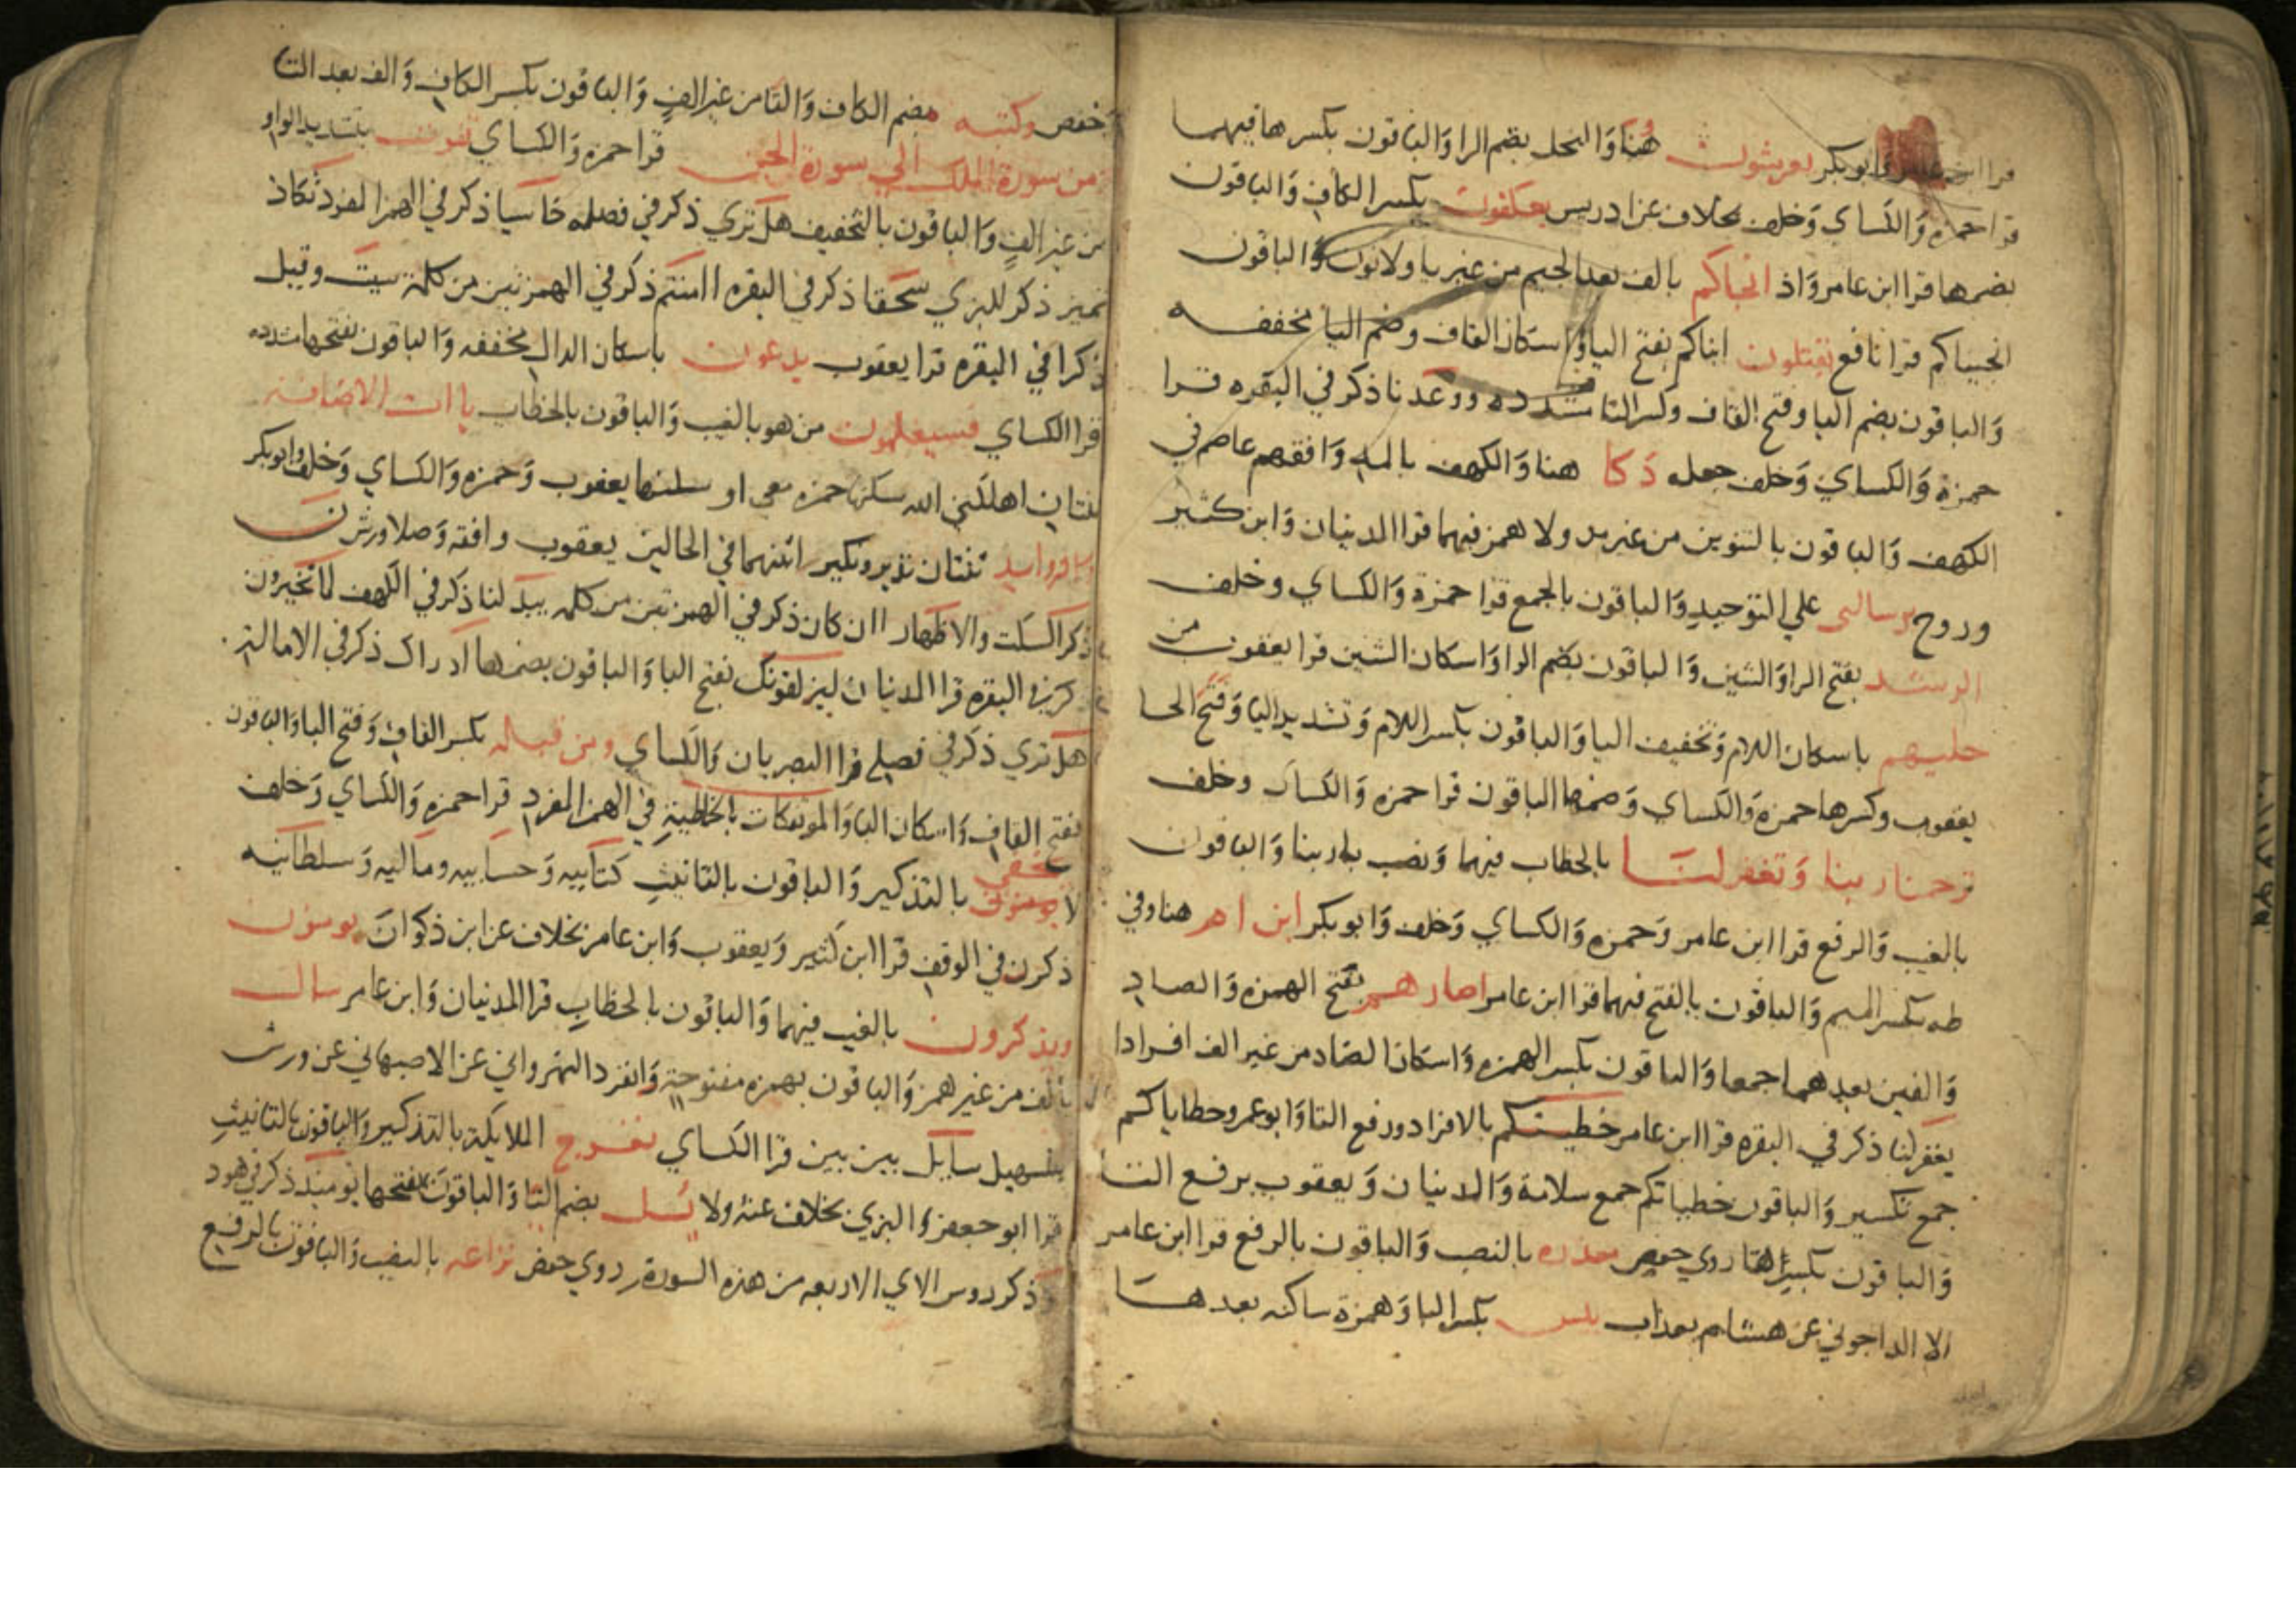 قرا ابن عامر وابو بكر يعرشون هنا وَالنحل بضم الرا وَالباقون بكسرها فيهما
قرا حمزه وَالكساي وَخلف بخلاف عن ادريس يعكفون بكسر الكاف وَالباقون
بضمها قرا ابن عامر وَاذ انجاكم بالف بعد الجيم من غير يا ولا نون وَالباقون
انجيناكم قرا نافع يقتلون ابناكم بفتح اليا وَاسكان القاف وضم التا مخففه
وَالباقون بضم اليا وفتح القاف وكسر التا مشدده ووعدنا ذكر في البقره قرا
حمزة وَالكساي وَخلف جعله دَكا هنا وَالكهف بالمد وَافقهم عاصم في
الكهف وَالباقون بالتنوين من غير مد ولا همز فيهما قرا المدنيان وَابن كثير
وروح برسالتى علي التوحيد وَالباقون بالجمع قرا حمزة وَالكساي وخلف
الرشد بفتح الرا وَالشين وَالباقون بضم الرا وَاسكان الشين قرا يعقوب من
حليهم باسكان اللام وَتخفيف اليا وَالباقون بكسر اللام وَتشديد اليا وَفتح الحا
يعقوب وكسرها حمزة وَالكساي وَضمها الباقون قرا حمزه وَالكساي وخلف
ترحمنا ربنا وَتغفر لنا بالخطاب فيهما وَنصب با ربنا وَالباقون
بالغيب وَالرفع قرا ابن عامر وَحمزه وَالكساي وَخلف وَابو بكر ابن ام هنا وفي
طه بكسر الميم وَالباقون بالفتح فيهما قرا ابن عامر اصارهم بفتح الهمزه وَالصاد
وَالفين بعدهما جمعا وَالباقون بكسر الهمزه وَاسكان الصاد من غير الف افرادا
يغفر لنا ذكر في البقره قرا ابن عامر خطيئتكم بالافراد ورفع التا وَابو عمرو خطاياكم
جمع تكسير وَالباقون خطياتكم جمع سلامة وَالمدنيان وَيعقوب برفع التا
وَالباقون بكسرها روي حفص معذره بالنصب وَالباقون بالرفع قرا ابن عامر
الا الداجوني عن هشام بعذاب بئس بكسر البا وَهمزة ساكنه بعدها
حفص وكتبه بضم الكاف وَالتا من غير الف وَالباقون بكسر الكاف وَالف بعد التا
من سورة الملك الي سورة الجن قرا حمزه وَالكساي تفوت بتشديد الواو
من غير الف وَالباقون بالتخفيف هل تري ذكر في فصله خاسيا ذكر في الهمز المفرد تكاد
تميز ذكر للبزي سحقا ذكر في البقره اامنتم ذكر في الهمزتين من كلمة سيئت وقيل
ذكرا في البقره قرا يعقوب يدعون باسكان الدال مخففه وَالباقون بفتحها مشدده
قرا الكساي فسيعلمون من هو بالغيب وَالباقون بالخطاب ياات الاضافة
ثنتان اهلكني الله سكنها حمزه معي او سكنها يعقوب وَحمزه وَالكساي وَخلف وابو بكر
الزوايد ثنتان نذير ونكير اثبتهما في الحالين يعقوب وافقه وَصلا ورش ن
ذكر السكت والاظهار اان كان ذكر في الهمزتين من كلمه يبدلنا ذكر في الكهف لما تخيرون
ذكر في البقره قرا المدنيان ليزلقونك بفتح اليا وَالباقون بضمها ادراك ذكر في الاماله
هل تري ذكر في فصله قرا البصريان وَالكساي ومن قبله بكسر القاف وَفتح البا وَالباقون
بفتح القاف وَاسكان البا وَالموتفكات بالخاطية في الهمز المفرد قرا حمزه وَالكساي وَخلف
لا يخفى بالتذكير وَالباقون بالتانيث كتابيه وَحسابيه وماليه وَسلطانيه
ذكرن في الوقف قرا ابن كثير وَيعقوب وَابن عامر بخلاف عن ابن ذكوان يومنون
ويذكرون بالغيب فيهما وَالباقون بالخطاب قرا المدنيان وَابن عامر سال
بالف من غير همز وَالباقون بهمزه مفتوحة وَانفرد النهرواني عن الاصبهاني عن ورش
بتسهيل سايل بين بين قرا الكساي تعرج الملايكة بالتذكير وَالباقون بالتانيث
قرا ابو جعفر وَالبزي بخلاف عنه ولا يسل بضم اليا وَالباقون بفتحها يوميذ ذكر في هود
وَذكر روس الاي الاربعه من هذه السورة روي حفص نزاعه بالنصب وَالباقون بالرفع